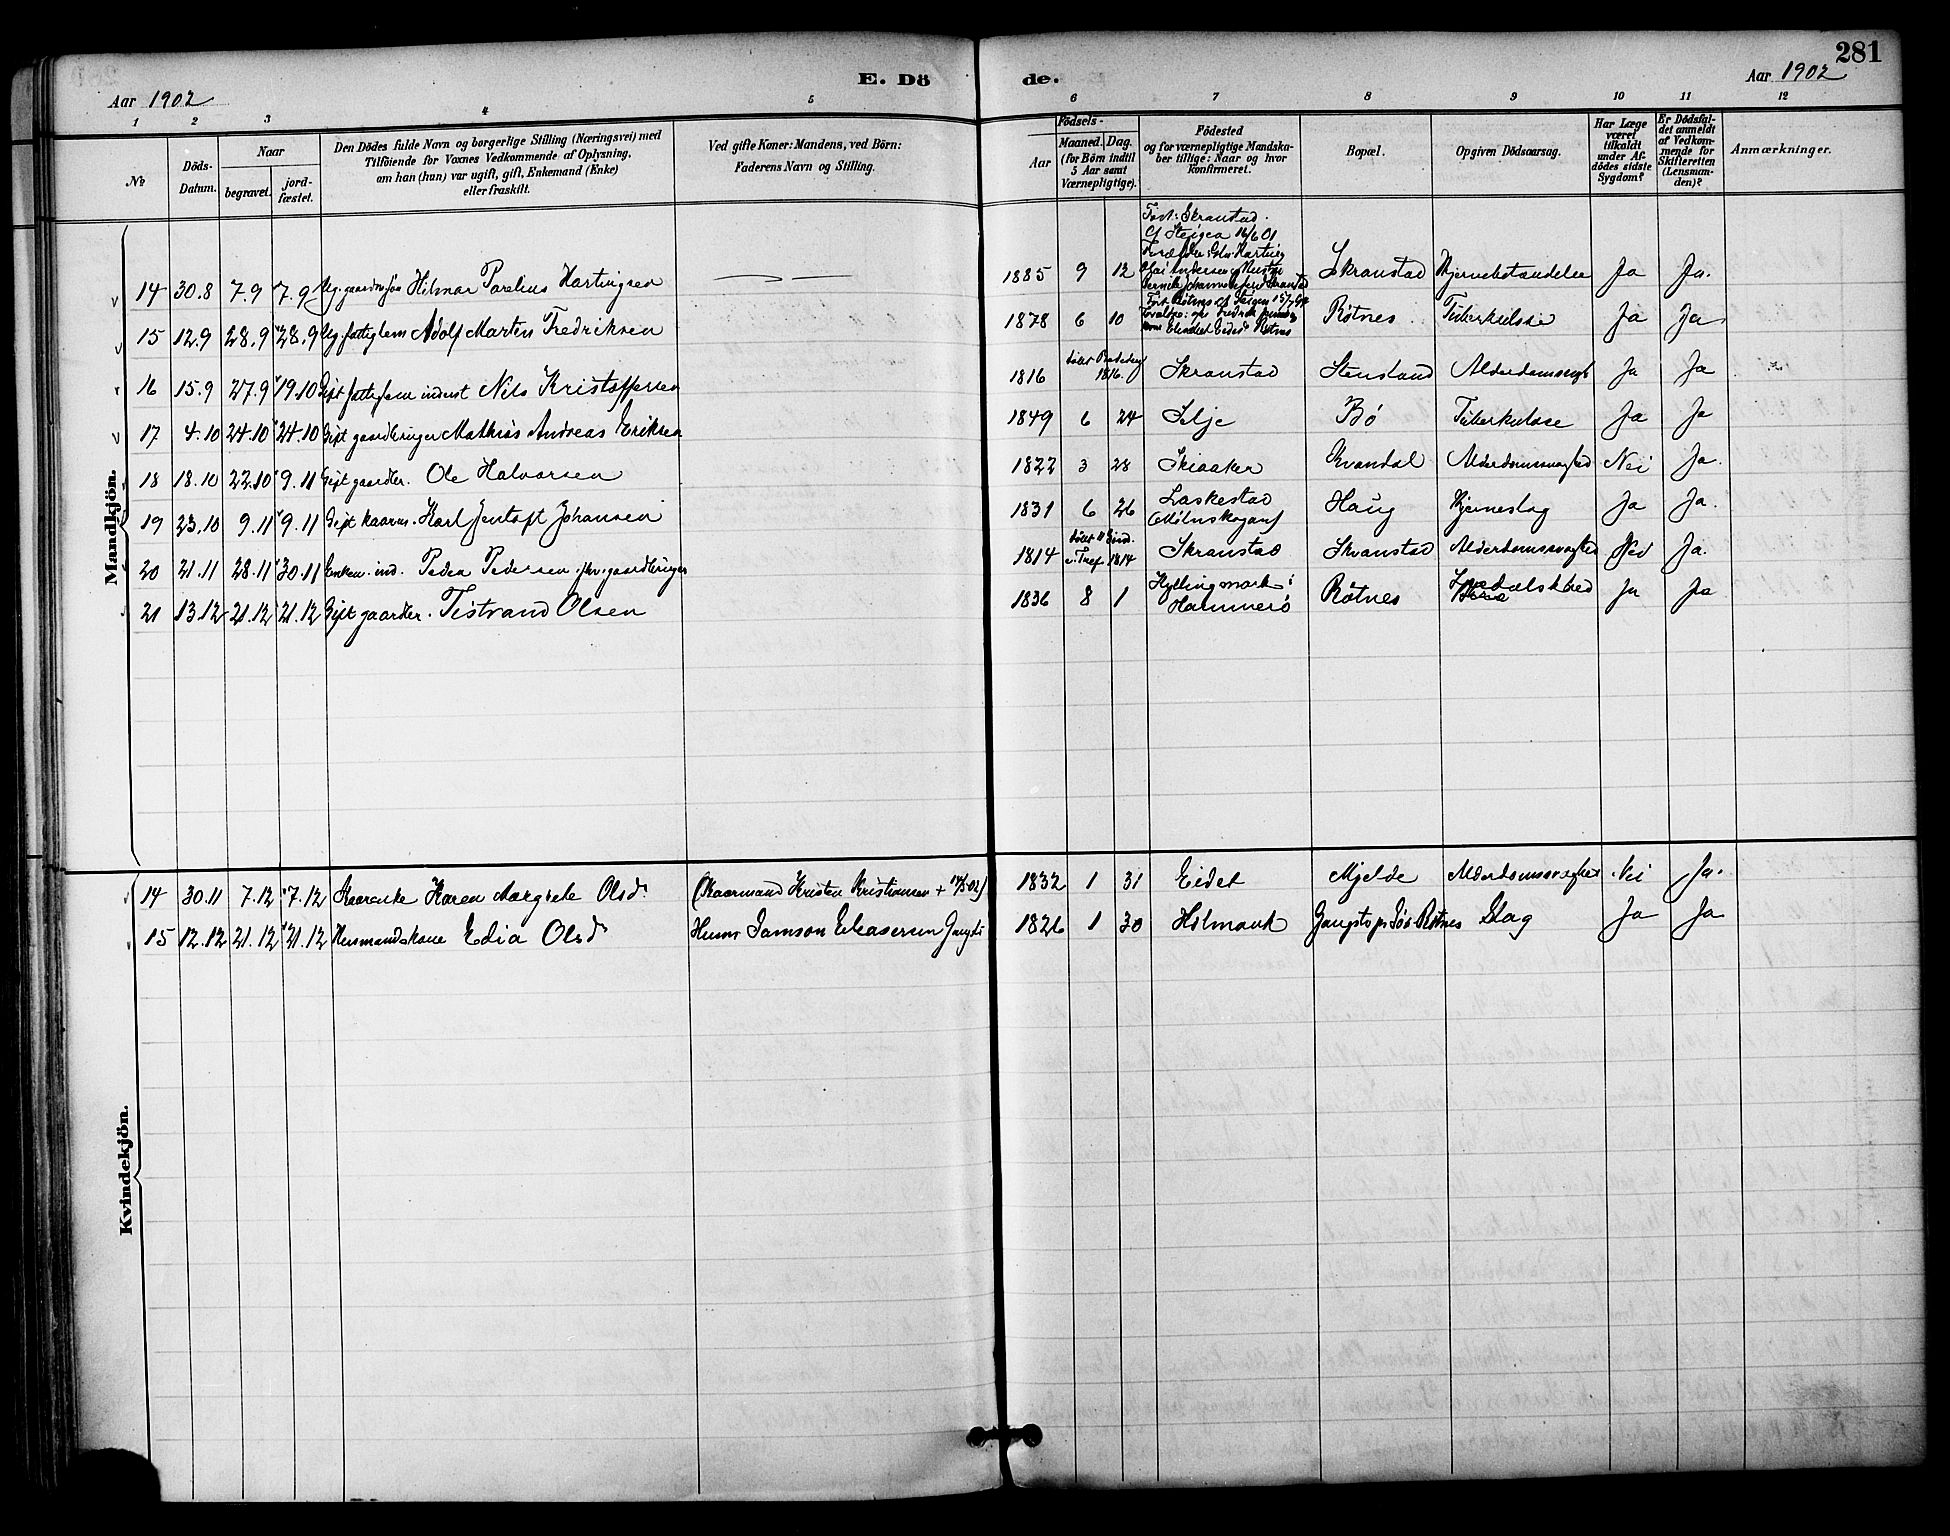 281
E. Dö de.
Aar 1902
Aar 1902
1 2 3 4 5 6 7 8 9 10 11 12
No
Döds-Datum.
Naar
begravet.
jord-fæstet.
Den Dödes fulde Navn og borgerlige Stilling (Næringsvei) med
Tilföiende for Voxnes Vedkommende af Oplysning,
om han (hun) var ugift, gift, Enkemand (Enke)
eller fraskilt.
Ved gifte Koner: Mandens, ved Börn:
Faderens Navn og Stilling.
Födsels-
Aar
Maaned. Dag.
(for Börn indtil
5 Aar samt
Værnepligtige).
Födested
og for værnepligtige Mandska-
ber tillige: Naar og hvor
konfirmeret.
Bopæl.
Opgiven Dödsaarsag.
Har Læge
været
tilkaldt
under Af-
dödes sidste
Sygdom?
Er Dödsfal-
det anmeldt
af Vedkom-
mende for
Skifteretten
(Lensman-
den)?
Anmærkninger.
Mandkjön.
14 30.8 7.9 7.9 Ug. gaardmsøn Hilmar Parelius Hartvigsen — 1885 9 12 Født: Skranstad. Cf Steigen 16/6 01 Skranstad Hjernebetændelse Ja Ja.
15 12.9 28.9 28.9 Ug. fattiglem Adolf Martin Fredriksen 1878 6 10 Født Røtnes cf Steigen Røtnes Tuberkulose Ja Ja
16 15.9 27.9 19.10 Gift fattiglem inderst Nils Kristoffersen 1816 døbt 1816. Skranstad Stensland Alderdomssvagh Ja Ja
17 4.10 24.10 24.10 Gift gaardbruger Mathias Andreas Eriksen 1849 6 24 Selje Bø Tuberkulose Ja Ja
18 18.10 22.10 9.11 Gift gaardbr. Ole Halvorsen 1822 3 28 Skiaaker Kvandal Alderdomssvaghed Nei Ja.
19 23.10 9.11 9.11 Gift kaarm. Karl Jentoft Johansen 1831 6 26 Laskestad Haug Hjerneslag Ja Ja.
20 21.11 28.11 30.11 Enkem. ind. Peder Pedersen. fhv. gaardbruger 1814 døbt 1814 Skranstad Skranstad Alderdomssvaghed Nei Ja.
21 13.12 21.12 21.12 Gift gaardbr. Tistrand Olsen 1836 8 1 Kyllingmark i Hammerø Røtnes Ja Ja
Kvindekjön.
14 30.11 7.12 7.12 Kaarenke Karen Margrete Olsd. (Kaarmand Kristen Kristiansen + 1832 1 31 Eidet Mjelde Alderdomssvaghed Nei Ja.
15 12.12 21.12 21.12 Husmandskone Edia Olsd Husm Samson Eleasersen 1826 1 30 Holmaak Røtnes Slag Ja Ja